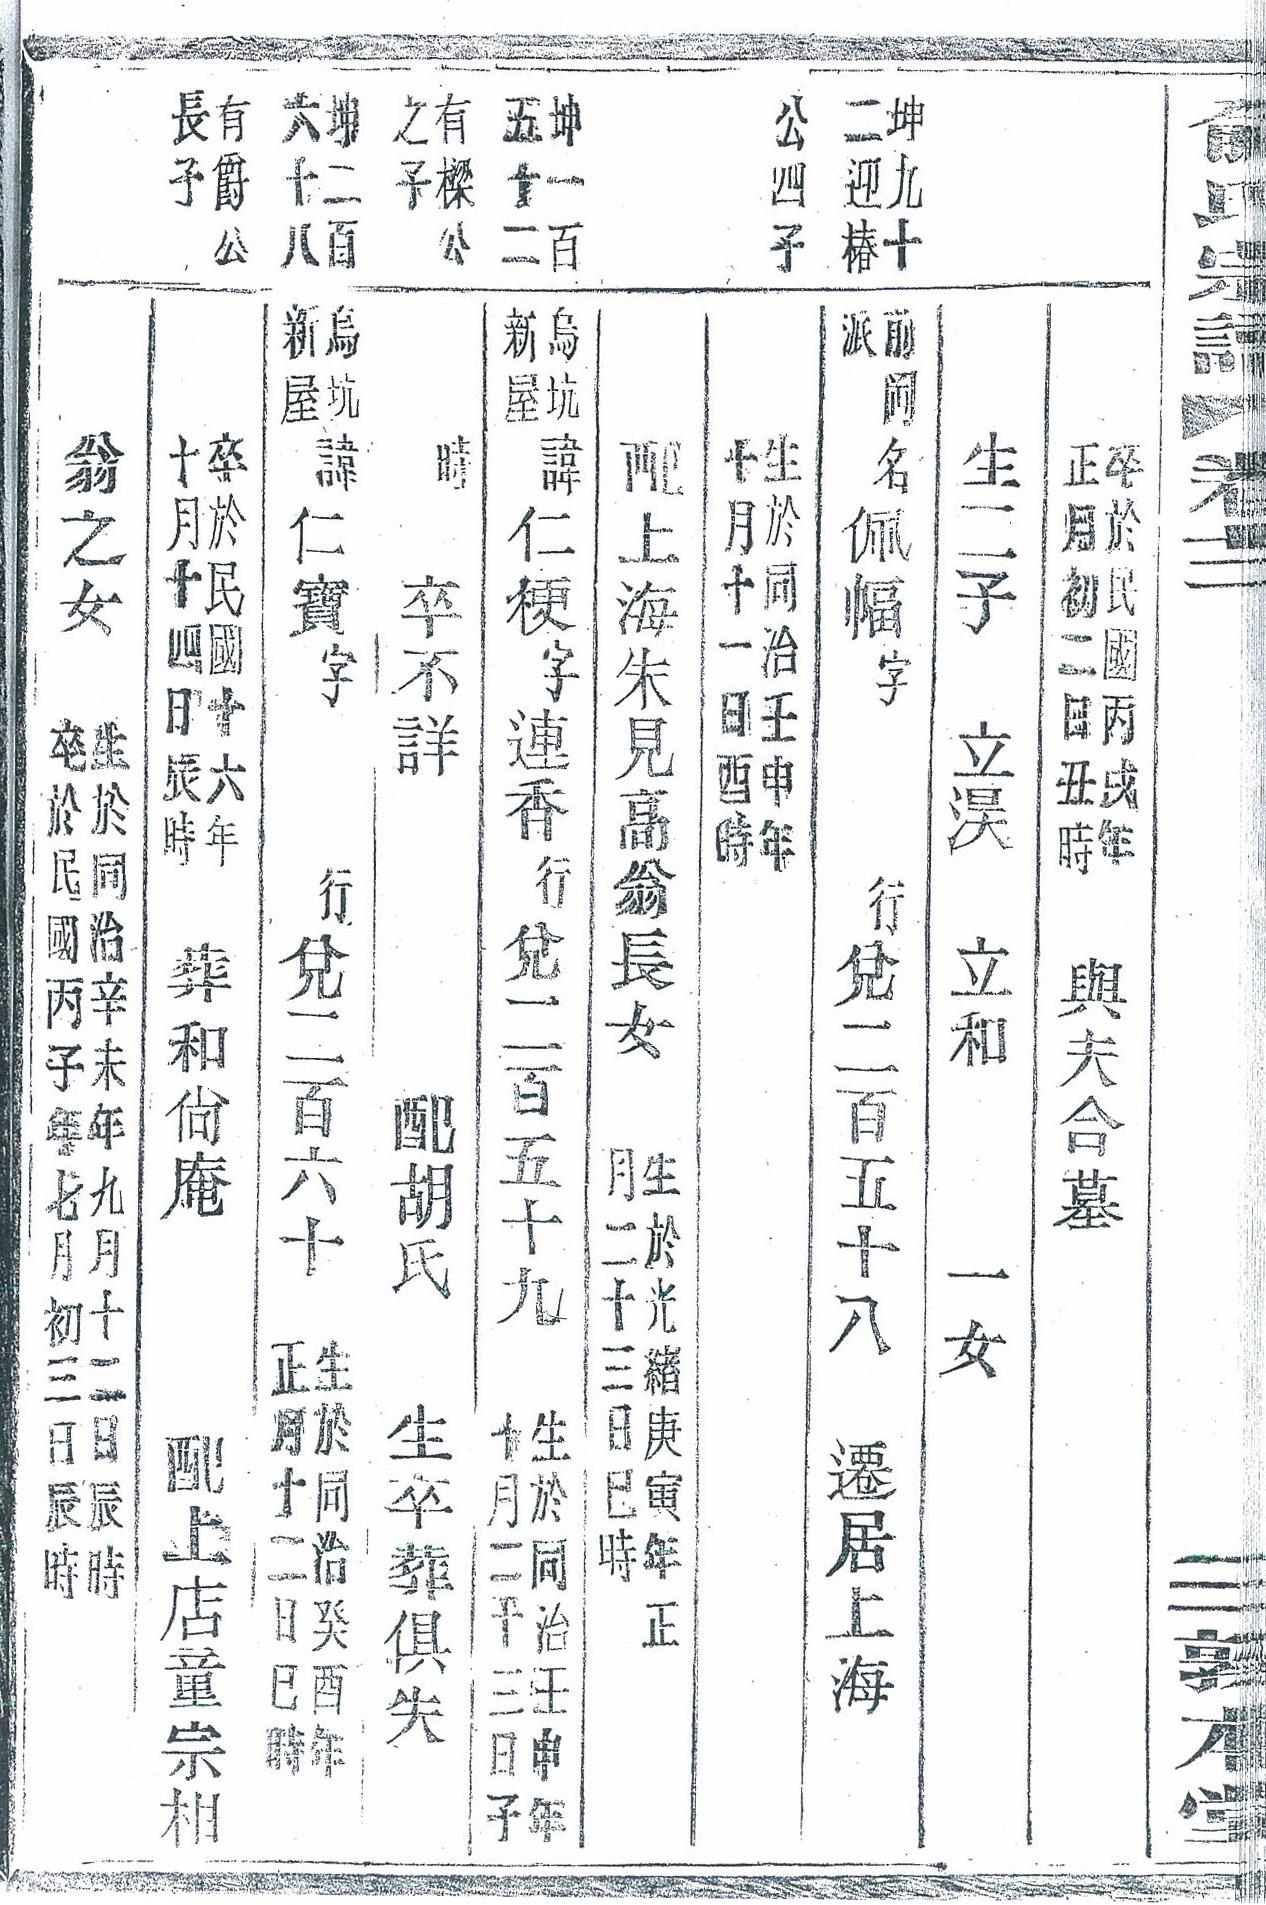 俞氏宗譜 卷二 三 敦本堂
卒於民國丙戌年
正月初二日丑時 與夫合墓
生二子 立淏 立和 一女
坤九十
二迎椿
前同
派 名佩幅字 行兌二百五十八 遷居上海
公四子
生於同治壬申年
十月十一日酉時
配上海朱見高翁長女 生於光緒庚寅年正
月二十三日巳時
坤一百
五十二
烏坑
新屋 諱仁梗字連香行兌二百五十九 生於同治壬申年
十月二十三日子
有樑公
之子
時 卒不詳 配胡氏 生卒葬俱失
坤二百
六十八
烏坑
新屋 諱仁寶字 行兌二百六十 生於同治癸酉年
正月十二日巳時
有爵公
長子
卒於民國十六年
十月十四日辰時 葬和尙庵 配上店童宗相
翁之女 生於同治辛未年九月十二日辰時
卒於民國丙子年七月初三日辰時